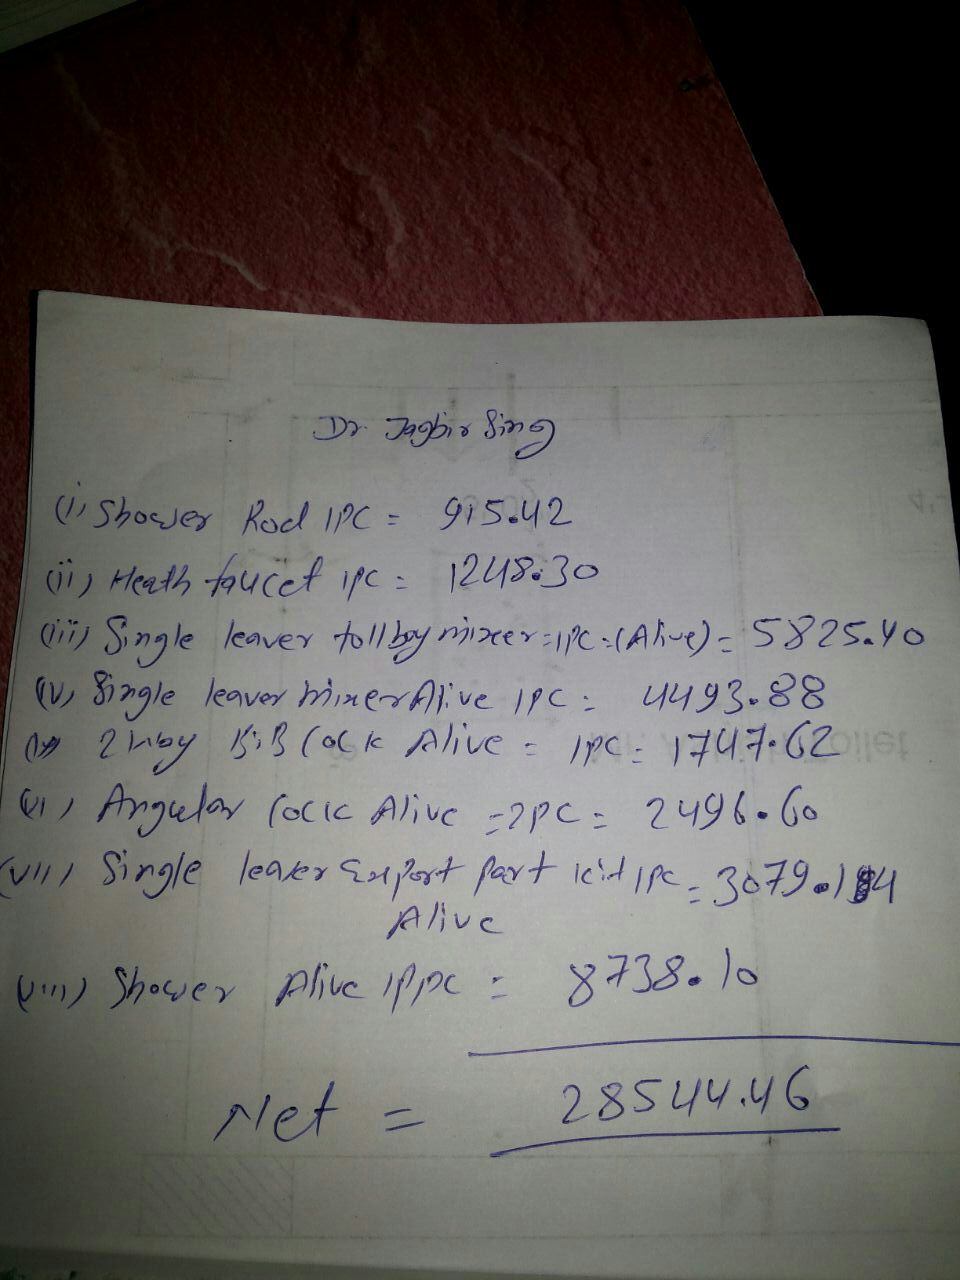 Dr. Jagbir Sing
(i) Shower Rod 1PC = 915.42
(ii) Heath faucet 1pc = 1248.30
(iii) Single leaver tollboy mixer = 1PC = (Alive) = 5825.40
(iv) Single leaver Mixer Alive 1PC = 4493.88
2 way BiB Cock Alive = 1PC = 1747.62
(vi) Angular Cock Alive = 2PC = 2496.60
(vii) Single leaver Export Part kit 1PC = 3079.14
Alive
(viii) Shower Alive 1PPC = 8738.10
Net = 28544.46